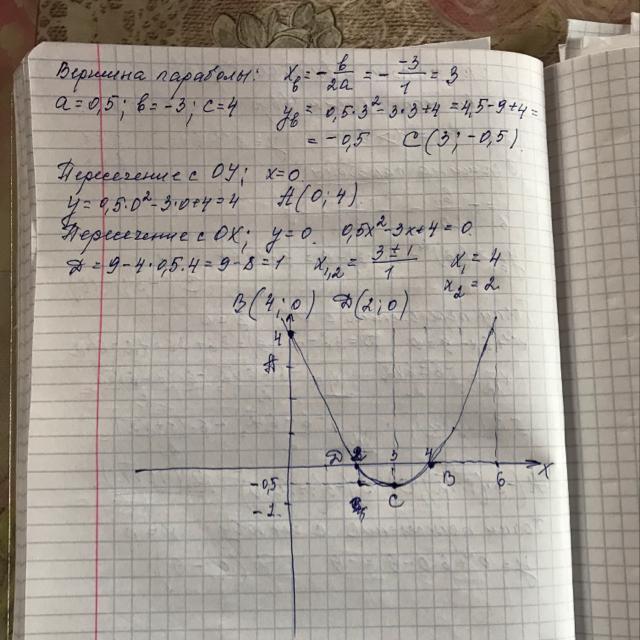 Вершина параболы: xв = -в/2а = - -3/1 = 3
a = 0,5; в = -3; c = 4 yв = 0,5·3²-3·3+4 = 4,5-9+4 =
= -0,5 C(3; -0,5)
Пересечение с OY; x=0
y = 0,5·0²-3·0+4 = 4 A(0; 4)
Пересечение с OX; y=0. 0,5x²-3x+4=0.
Д = 9-4·0,5·4 = 9-8 = 1 x₁,₂ = 3±1/1 x₁ = 4
x₂ = 2
В(4; 0) Д(2; 0)
4
А
Д 2 3 4 В 6 X
-0,5
C
-1